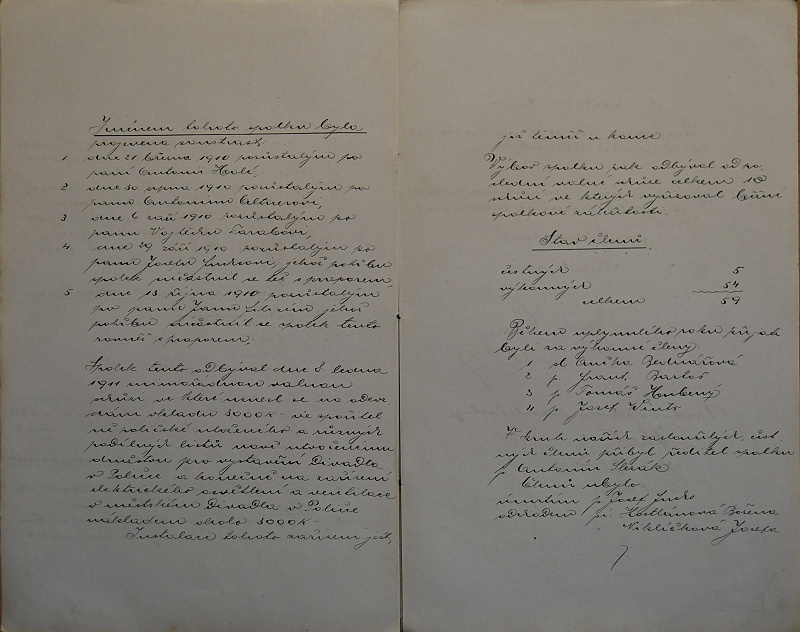 Jménem tohoto spolku byla
projevena soustrast:
1 dne 21 března 1910 pozůstalým po
paní Antonii Holé,
2 dne 30 srpna 1910 pozůstalým po
panu Antonínu
3 dne 6 září 1910 pozůstalým po
panu Vojtěchu
4 dne 29 září 1910 pozůstalým po
panu Josefu jehož pohřbu
spolek súčastnil se též s praporem,
5 dne 13 října 1910 pozůstalým
po panu Janu jehož
pohřbu súčastnil se spolek tento
rovněž s praporem.
Spolek tento odbýval dne 8 ledna
1911 mimořádnou valnou
schůzi ve které usnesl se na
vkladu 3000 K ve spořitel
ně poličské uloženého a různých
podílných listů nově utvořenému
družstvu pro vystavění Divadla
v Poličce a konečně na zařízení
elektrického osvětlení a ventilace
v městském Divadle v Poličce
nákladem okolo 3000 K
Instalace tohoto zařízení jest
již téměř u konce.
Výbor spolku pak odbýval od po
slední valné schůze celkem 10
schůzí ve kterých vyřizoval běžné
spolkové záležitosti.
Stav členů
čestných 5
výkonných 54
celkem 59
Během uplynulého roku přijati
byli za výkonné členy:
1 sl. Anežka Bednářová
2 p. Frant. Bartoš
3 p. Tomáš
4 p. Josef
V kruh našich čest
ných členů přibyl ředitel spolku
p. Antonín
Členů ubylo
úmrtím p. Josef
odchodem pí. Božena
Josefa